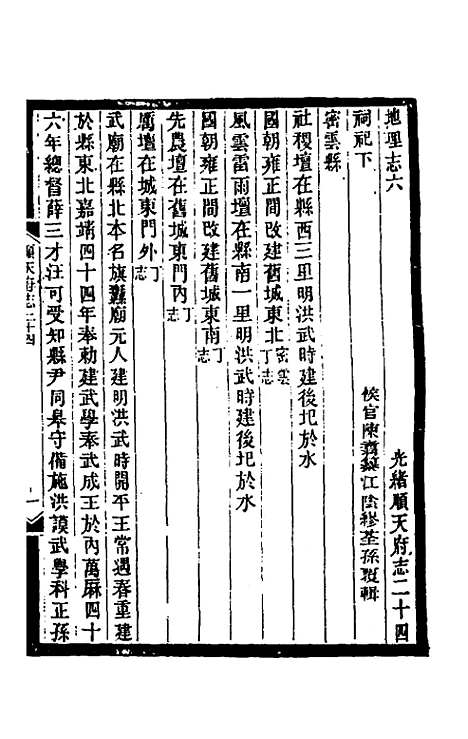 地理志六 光緒順天府志二十四
祠祀下 侯官陳壽纂江陰繆荃孫覆輯
密雲縣
社稷壇在縣西三里明洪武時建後圯於水
國朝雍正間改建舊城東北密雲丁志
風雲雷雨壇在縣南一里明洪武時建後圯於水
國朝雍正間改建舊城東南丁志
先農壇在舊城東門內丁志
厲壇在城東門外丁志
武廟在縣北本名旗纛廟元人建明洪武時開平王常遇春重建
於縣東北嘉靖四十四年奉勅建武學奉武成王於內萬厤四十
六年總督薛三才汪可受知縣尹同皋守備施洪謨武學科正孫
順天府志二十四 一